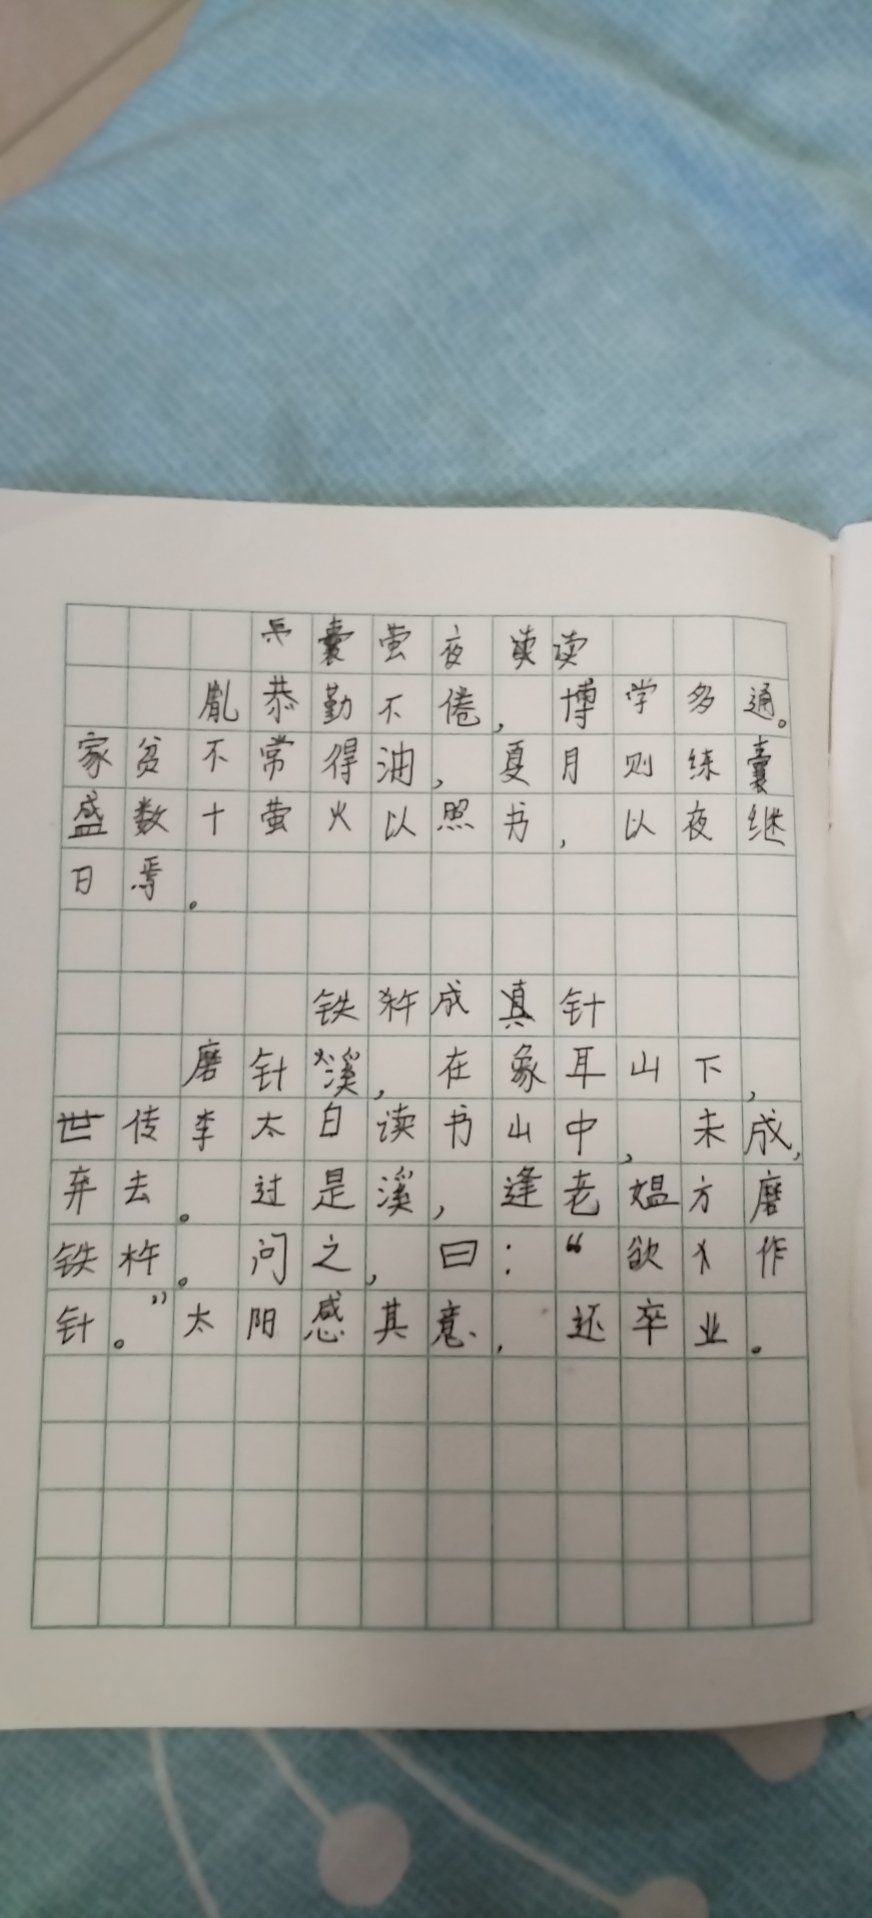 囊萤夜读
胤恭勤不倦，博学多通。
家贫不常得油，夏月则练囊
盛数十萤火以照书，以夜继
日焉。
铁杵成针
磨针溪，在象耳山下，
世传李太白读书山中，未成，
弃去。过是溪，逢老媪方磨
铁杵。问之，曰：“欲作
针。”太阳感其意，还卒业。